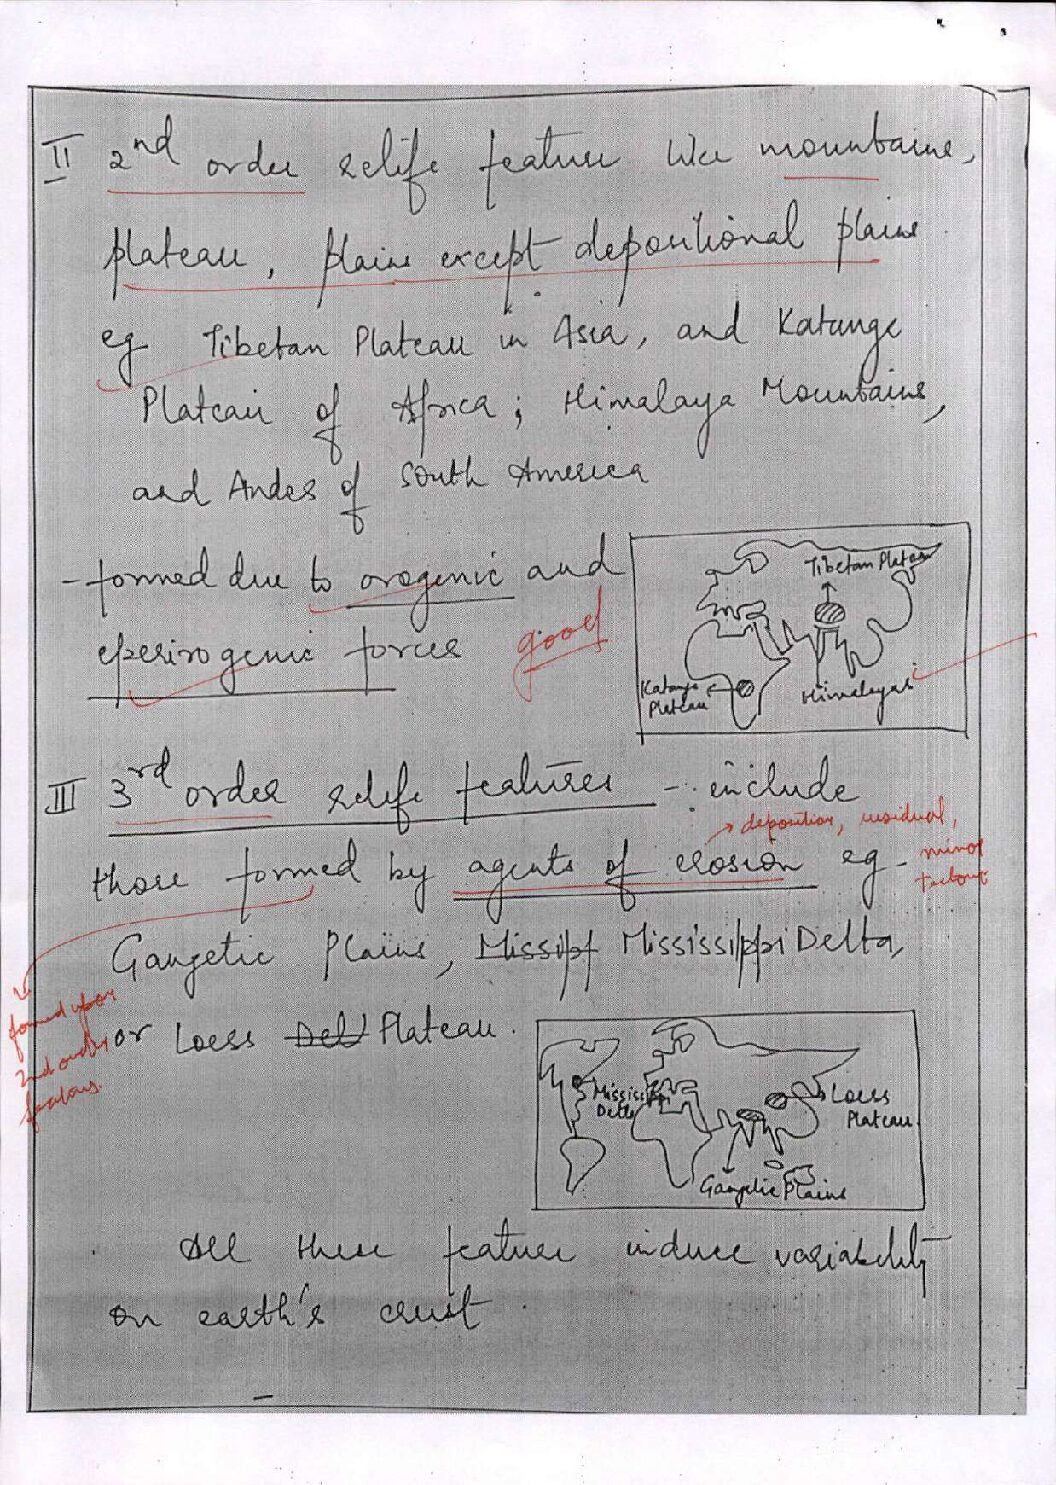 II 2nd order relife feature like mountains,
plateau, plains except depositional plains
eg Tibetan Plateau in Asia, and Katange
Plateau of Africa; Himalaya Mountains,
and Andes of South America
- formed due to orogenic and
epeirogenic forces good
Tibetan Plateau
Katanga
Plateau
Himalayas
III 3rd order relife features - include
→ deposition, residual,
minor
those formed by agents of erosion eg.
Gangetic Plains, Missipf Mississippi Delta,
formed upon
or Loess Del Plateau.
2nd order
features.
Mississippi
Delta
Loess
Plateau
Gangetic Plains
All these feature induce variability
on earth's crust.